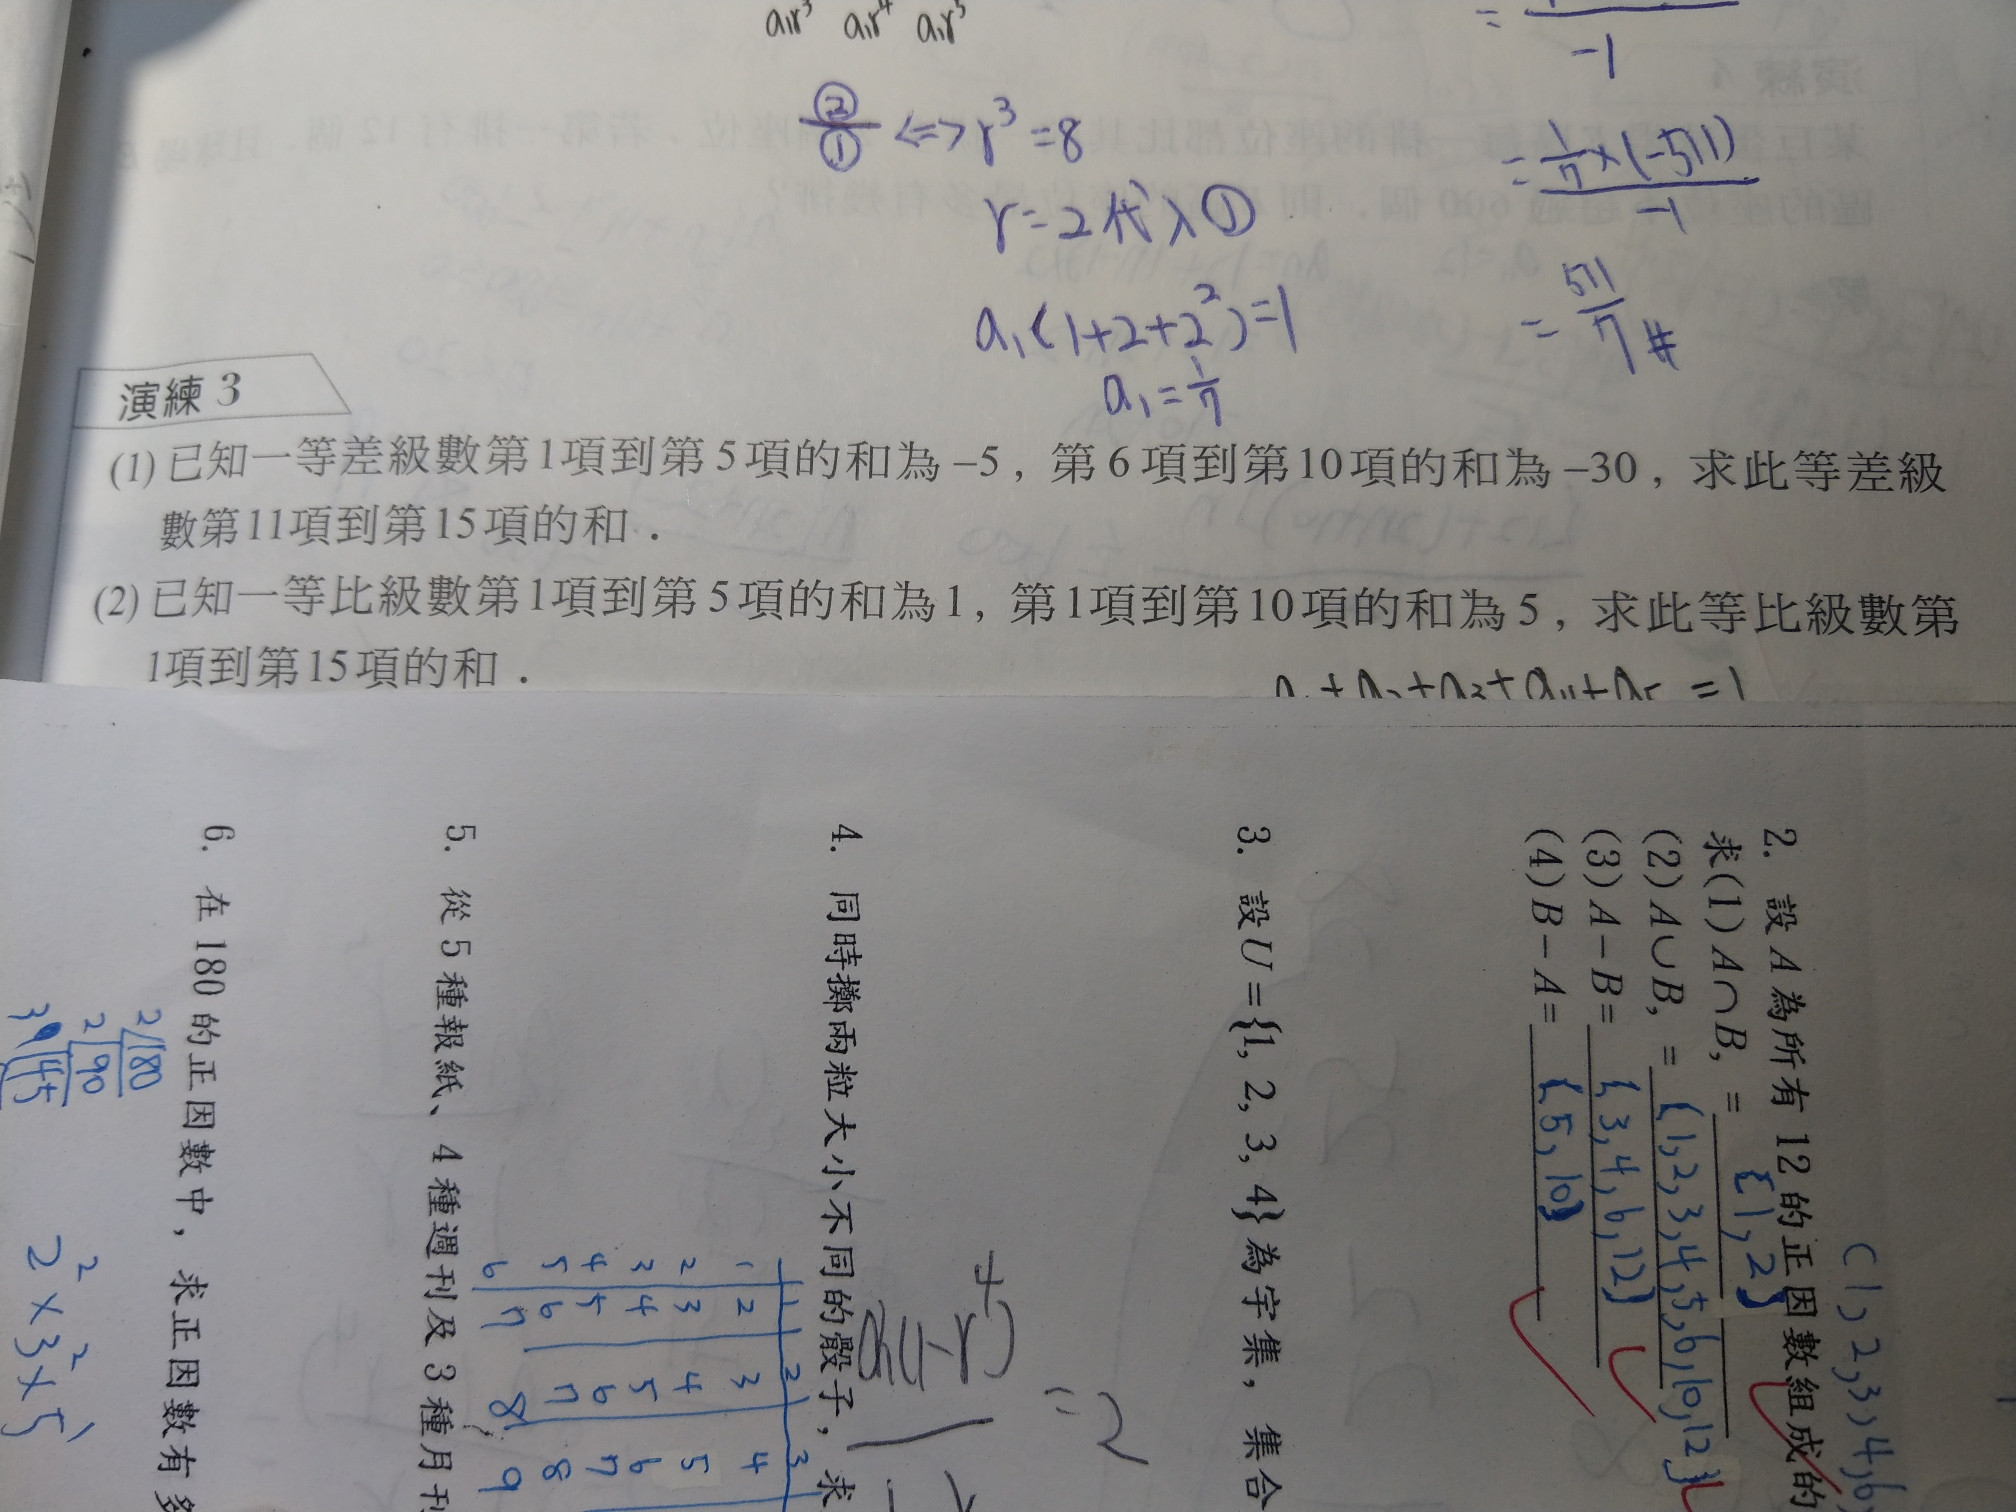 a₁r³ a₁r⁴ a₁r⁵
②/① <=> r³=8
r=2代入①
a₁(1+2+2²)=1
a₁=1/7
=
-1
= 1/7×(-511)
-1
= 511/7 #
演練 3
(1) 已知一等差級數第1項到第5項的和為 –5，第6項到第10項的和為 –30，求此等差級
數第11項到第15項的和．
(2) 已知一等比級數第1項到第5項的和為1，第1項到第10項的和為5，求此等比級數第
1項到第15項的和．
a₁+a₂+a₃+a₄+a₅ =1
(1,2,3,4,6,
2. 設 A 為所有 12 的正因數組成的
求(1) A∩B, = {1,2}
(2) A∪B, = {1,2,3,4,5,6,10,12}
(3) A－B= {3,4,6,12}
(4) B－A= {5,10}
3. 設U={1, 2, 3, 4}為宇集，集合
=2
4. 同時擲兩粒大小不同的骰子，求
1 2 3
1 2 3 4
2 3 4 5
3 4 5 6
4 5 6 7
5 6 7 8
6 7 8 9
5. 從 5 種報紙、4 種週刊及 3 種月刊
6. 在 180 的正因數中，求正因數有多
2/180
2/90
3/45
2²×3²×5¹